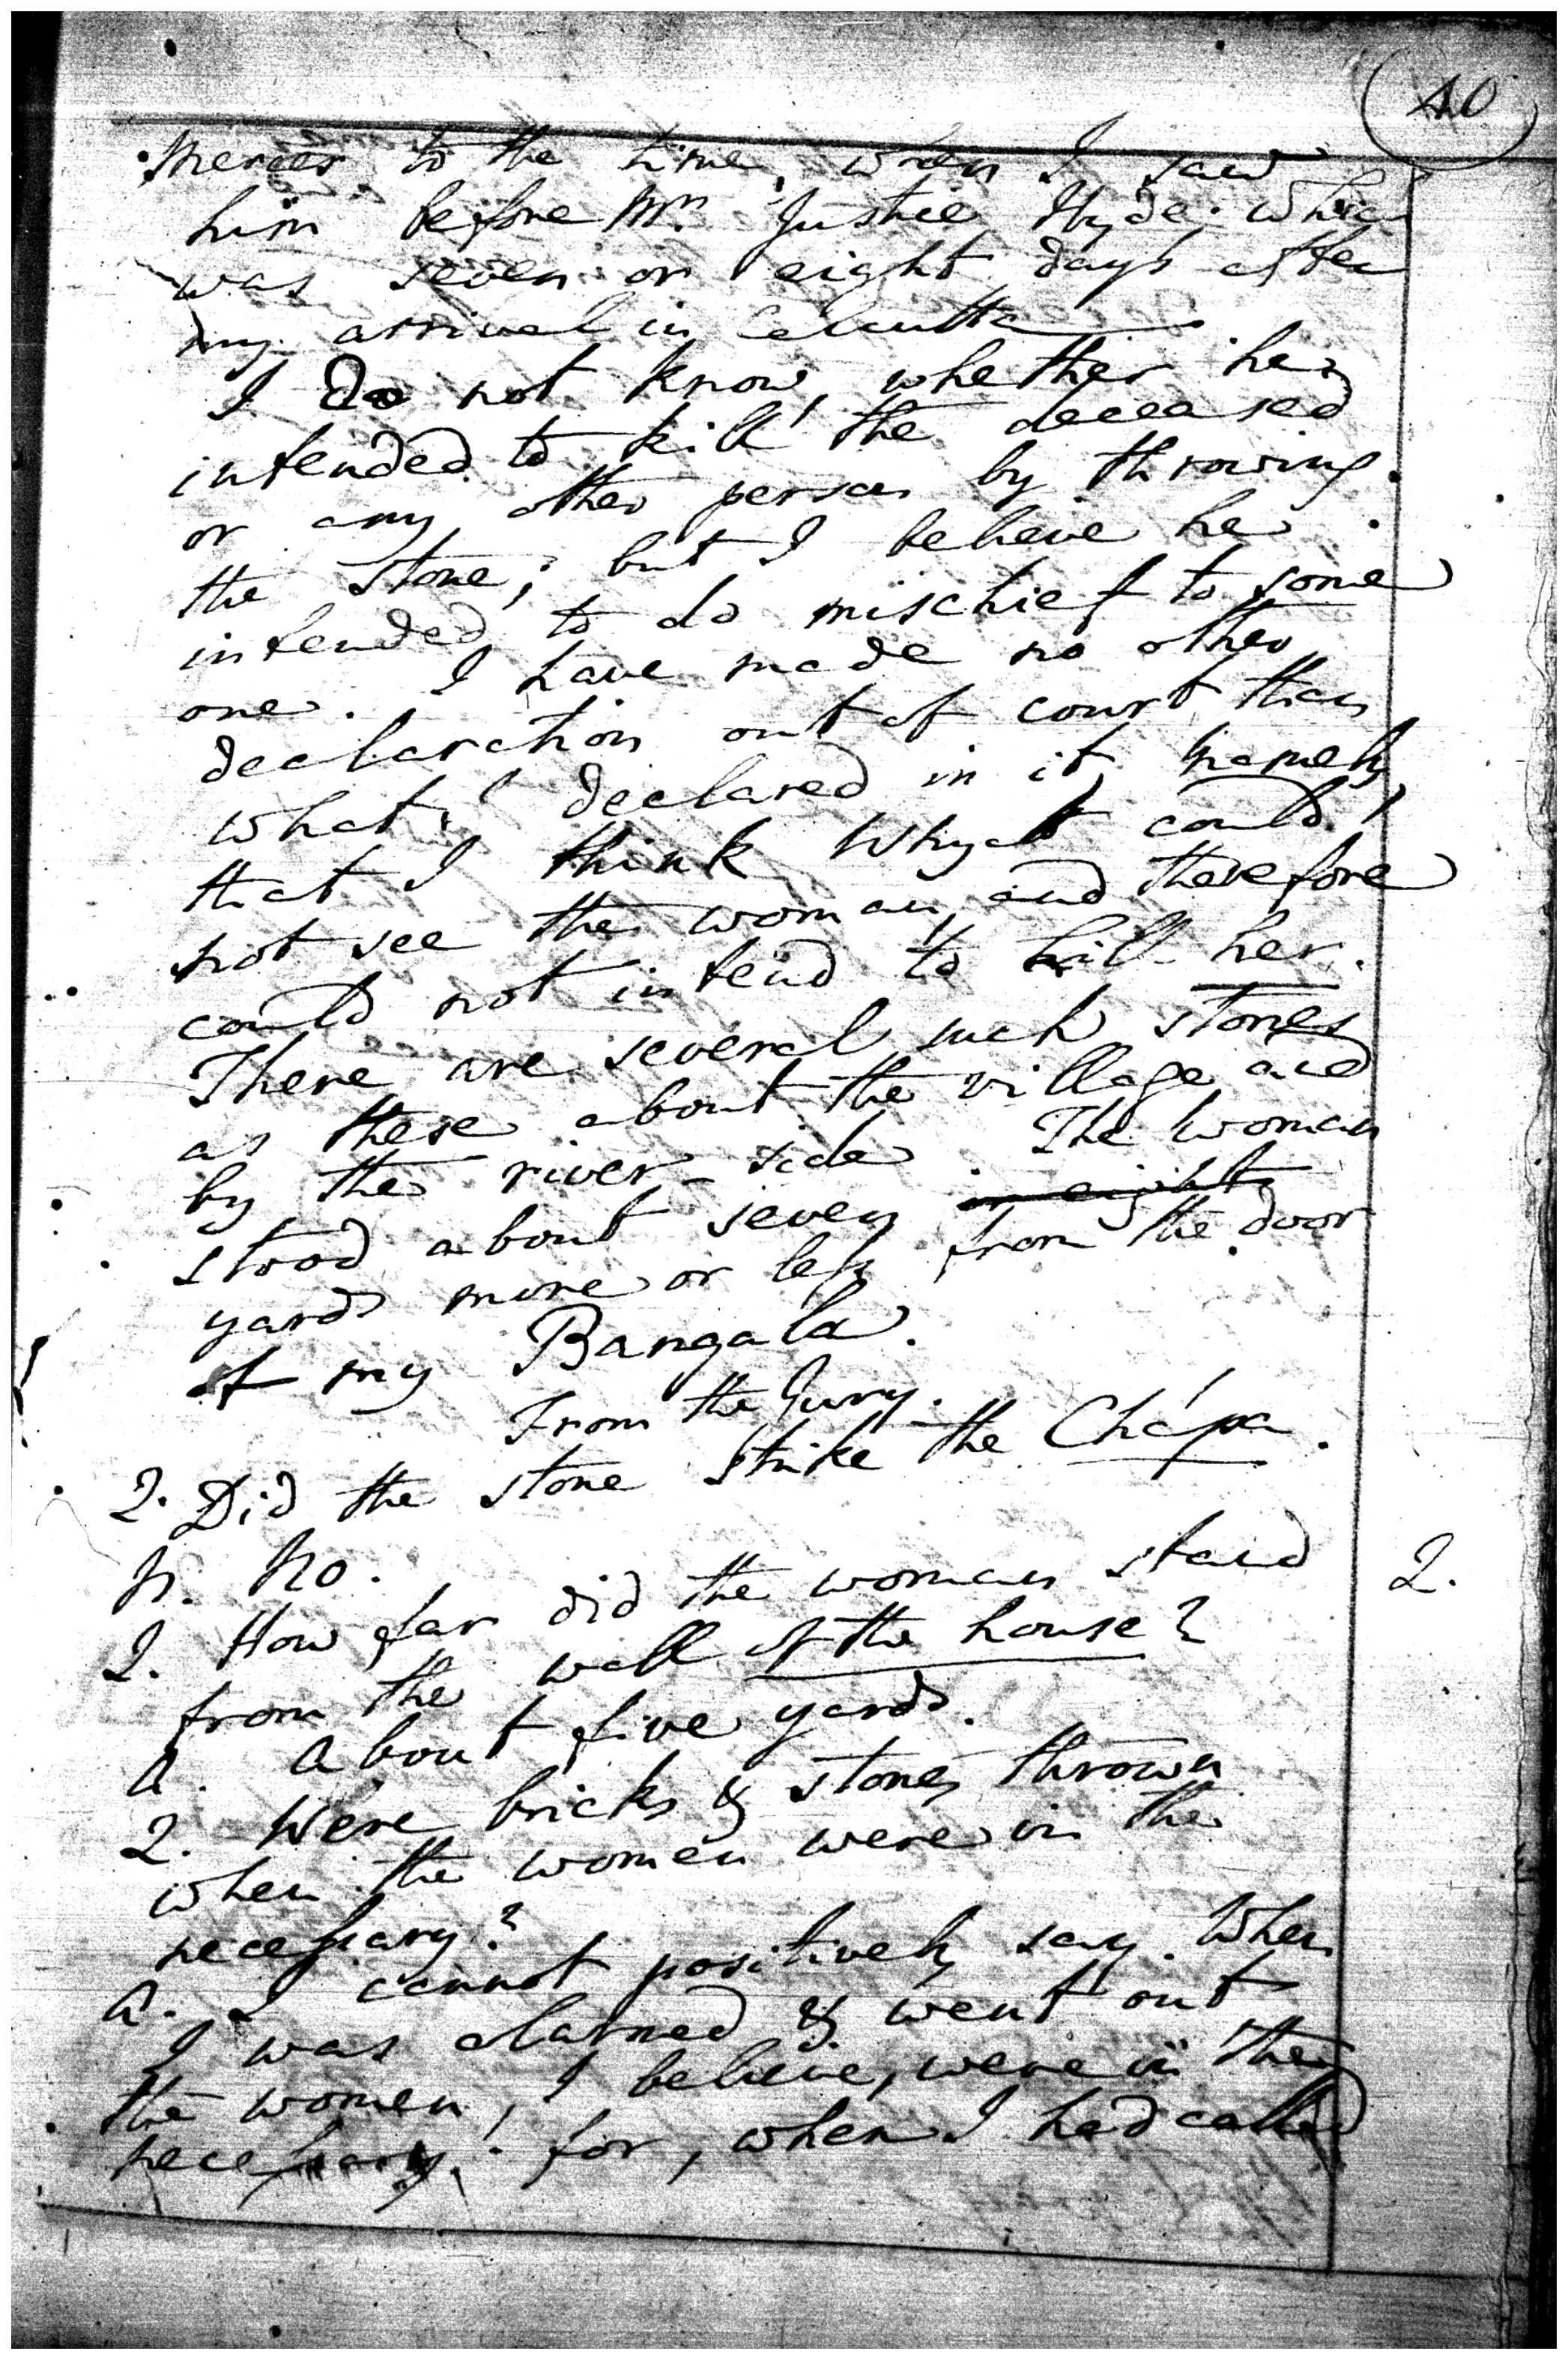 40
Mercer to the time, when I saw
him before Mr. Justice Hyde which
was seven or eight days after
my arrival in Calcutta
I do not know, whether he
intended to kill the deceased
or any other person by throwing
the stone; but I believe he
intended to do mischief to some
one. I have made no other
declaration out of court than
what I declared in it, namely,
that I think Whyatt could
not see the woman, and therefore
could not intend to kill her.
There are several such stones
as these about the village and
by the river-side. The woman
stood about seven or eight
yards more or less from the door
of my Bangala.
From the Jury.
2. Did the stone strike the Chápa.
A. No.
2. How far did the woman stand
2.
from the wall of the house?
A. About five yards.
2. Were bricks & stones thrown
when the women were in the
necessary?
A. I cannot positively say. When
I was alarmed & went out
the women, I believe, were in the
necessary: for, when I had called